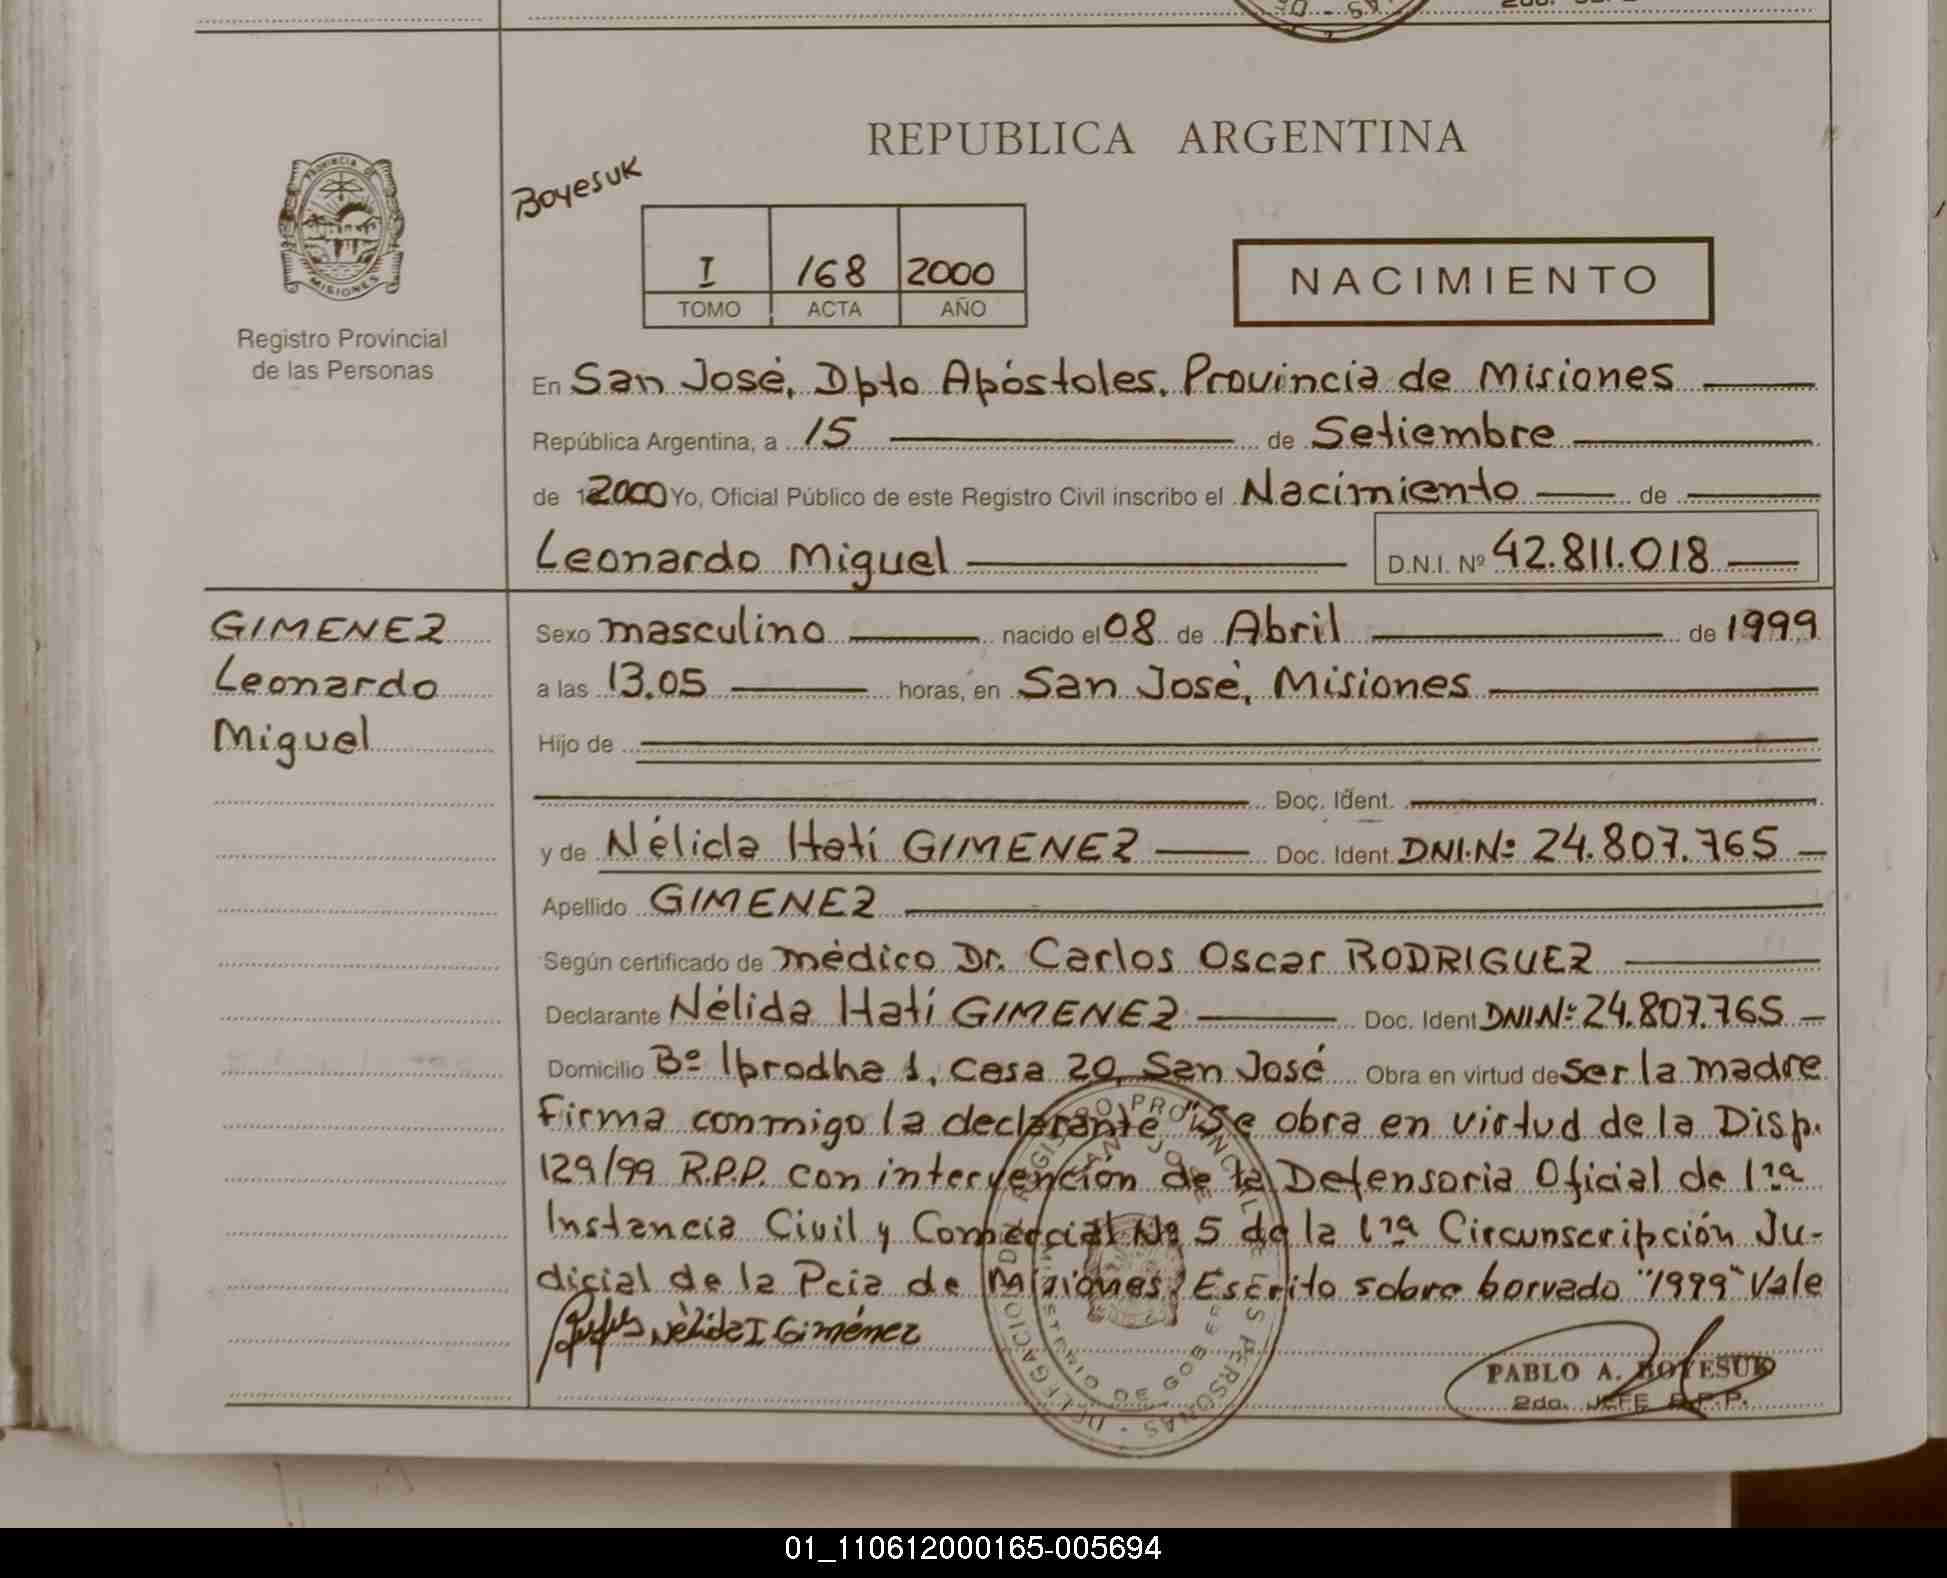 REPUBLICA ARGENTINA
Boyesuk
I 168 2000
TOMO ACTA AÑO
NACIMIENTO
PROVINCIA DE
MISIONES
Registro Provincial
de las Personas
En San José, Dpto Apóstoles, Provincia de Misiones
República Argentina, a 15 de Setiembre
de 2000 Yo, Oficial Público de este Registro Civil inscribo el Nacimiento de
Leonardo Miguel D.N.I. Nº 42.811.018
GIMENEZ
Leonardo
Miguel
Sexo masculino nacido el 08 de Abril de 1999
a las 13.05 horas, en San José, Misiones
Hijo de
Doc. Ident.
y de Nélida Hatí GIMENEZ Doc. Ident. DNI.Nº 24.807.765
Apellido GIMENEZ
Según certificado de médico Dr. Carlos Oscar RODRIGUEZ
Declarante Nélida Hatí GIMENEZ Doc. Ident DNI.Nº 24.807.765
Domicilio Bº Iprodha 1, casa 20, San José Obra en virtud de ser la madre
Firma conmigo la declarante "Se obra en virtud de la Disp.
129/99 R.P.P. con intervención de la Defensoria Oficial de 1ra
Instancia Civil y Comercial Nº 5 de la 1ra Circunscripción Ju-
dicial de la Pcia de Misiones. Escrito sobre borrado "1999" Vale
Nélida I Giménez
PABLO A. BOYESUK
2do. JEFE R.P.P.
01_110612000165-005694